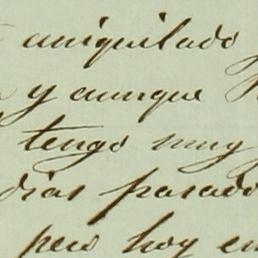 aniquilado
y aunque
tengo muy
dias pasado
pero hoy en